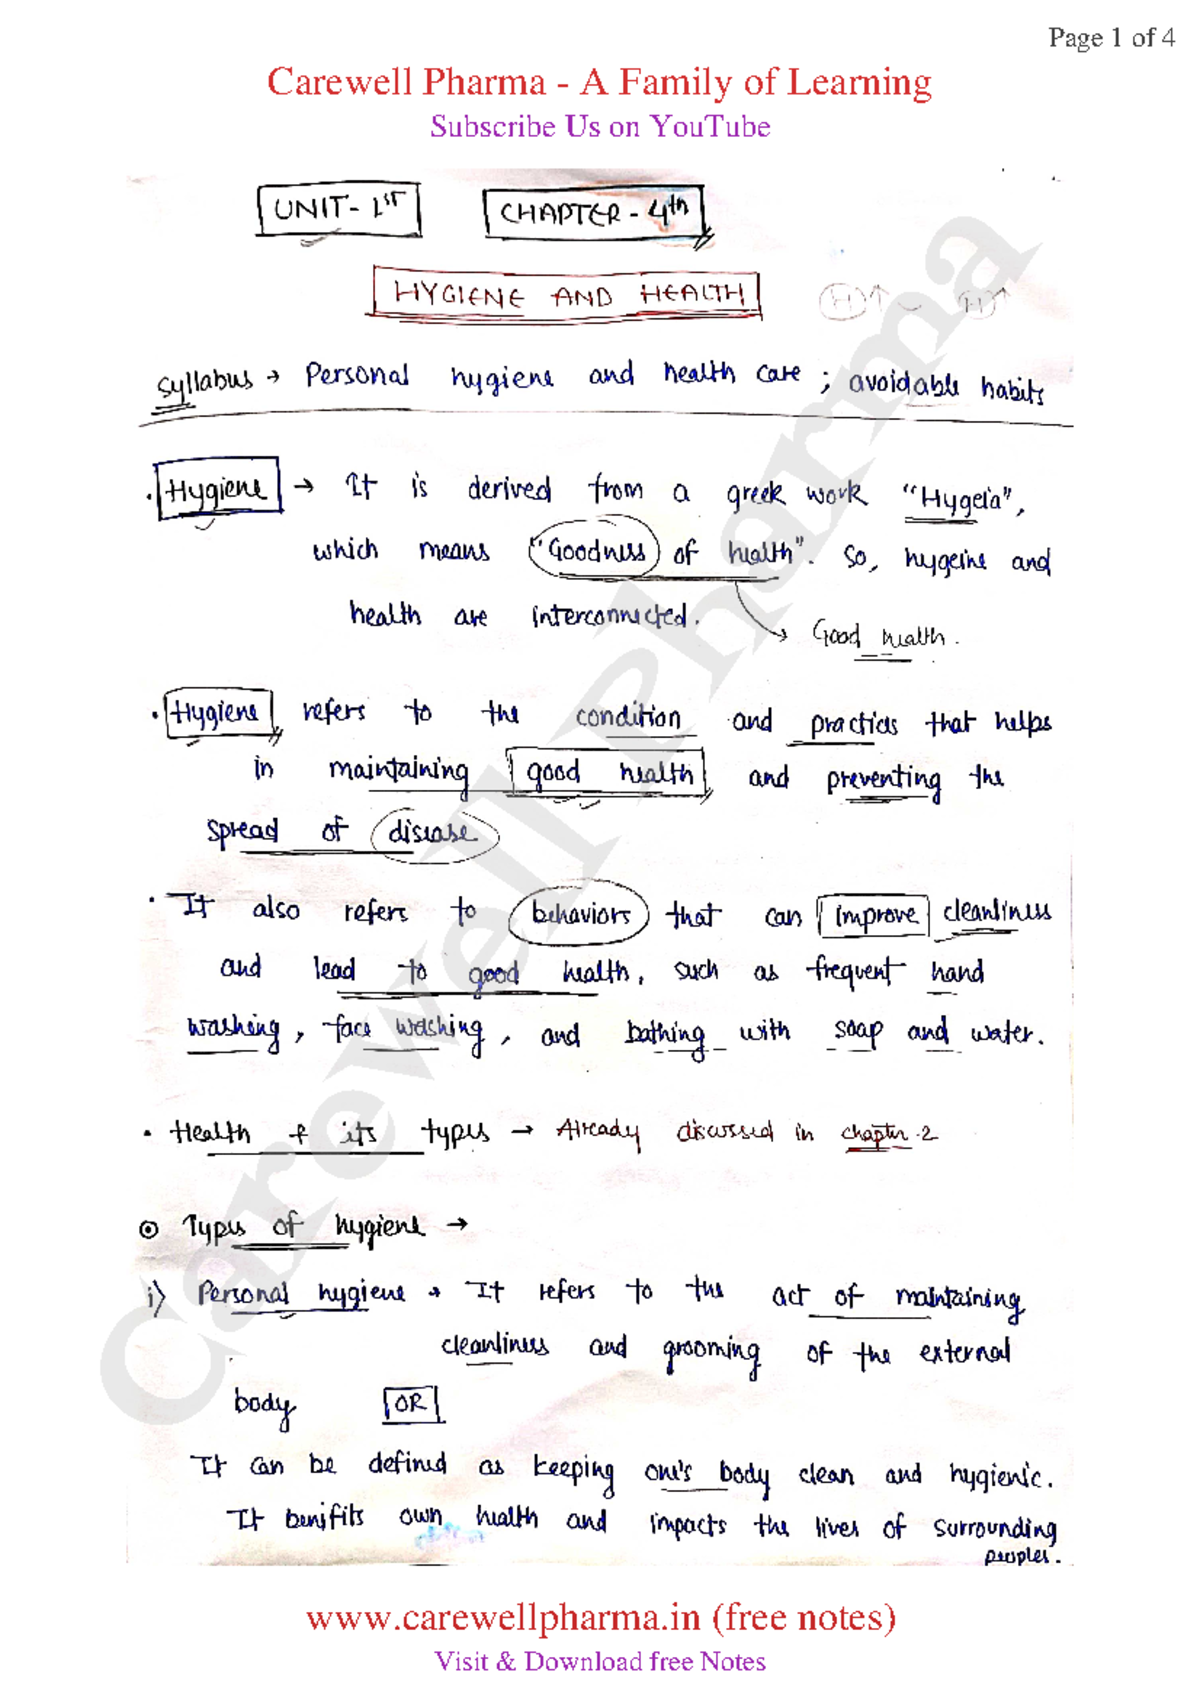 Page 1 of 4
Carewell Pharma - A Family of Learning
Subscribe Us on YouTube
UNIT- 1ST CHAPTER - 4th
HYGIENE AND HEALTH
H↑ - H↑
Syllabus → Personal hygiene and health care ; avoidable habits
• Hygiene → It is derived from a greek work "Hygeia",
which means "Goodness of health". So, hygeine and
health are interconnected. → Good health.
• Hygiene refers to the condition and practices that helps
in maintaining good health and preventing the
spread of disease
• It also refers to behaviors that can improve cleanliness
and lead to good health, such as frequent hand
washing, face washing, and bathing with soap and water.
• Health & its types → Already discussed in chapter-2
⊙ Types of hygiene →
i) Personal hygiene → It refers to the act of maintaining
cleanliness and grooming of the external
body OR
It can be defined as keeping one's body clean and hygienic.
It benifits own health and impacts the lives of surrounding
peoples.
Carewell Pharma
www.carewellpharma.in (free notes)
Visit & Download free Notes